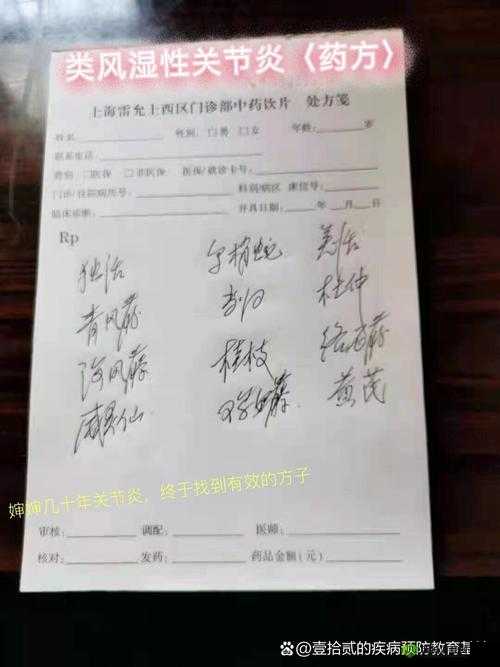 类风湿性关节炎〈药方〉
上海雷允上西区门诊部中药饮片 处方笺
姓名 性别：□男 □女 年龄： 岁
联系电话
费别 □医保 □非医保 医保/就诊卡号：
门诊/住院病历号： 科别/病区 床位号：
临床诊断： 开具日期： 年 月 日
Rp
独活 乌梢蛇 羌活
青风藤 当归 杜仲
海风藤 桂枝 络石藤
威灵仙 鸡血藤 黄芪
婶婶几十年关节炎，终于找到有效的方子
审核： 调配： 医师：
核对： 发药： 药品金额（元）：
头条 @壹拾贰的疾病预防教育基